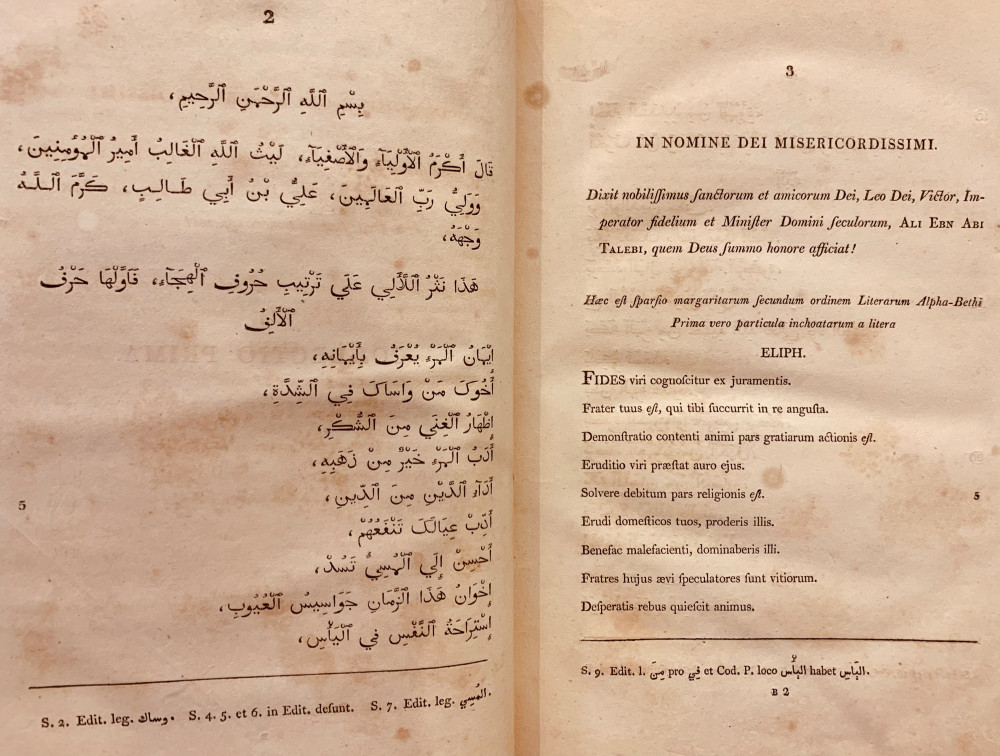 2
بِسْمِ ٱللَّهِ ٱلرَّحْمٰنِ ٱلرَّحِيمِ،
قَالَ أَكْرَمُ ٱلْأَوْلِيَآءِ وَٱلْأَصْفِيَآءِ، لَيْثُ ٱللَّهِ ٱلْغَالِبُ أَمِيرُ ٱلْمُؤْمِنِينَ،
وَوَلِيُّ رَبِّ ٱلْعَالَمِينَ، عَلِيُّ بْنُ أَبِي طَالِبٍ، كَرَّمَ ٱللَّهُ
وَجْهَهُ،
هَذَا نَثْرُ ٱللَّآلِي عَلَي تَرْتِيبِ حُرُوفِ ٱلْهِجَآءِ، فَأَوَّلُهَا حَرْفُ
ٱلْأَلِفُ
إِيمَانُ ٱلْمَرْءِ يُعْرَفُ بِأَيْمَانِهِ،
أَخُوكَ مَنْ وَاسَاكَ فِي ٱلشِّدَّةِ،
إِظْهَارُ ٱلْغِنَي مِنَ ٱلشُّكْرِ،
أَدَبُ ٱلْمَرْءِ خَيْرٌ مِنْ ذَهَبِهِ،
5 أَدَآءُ ٱلدَّيْنِ مِنَ ٱلدِّينِ،
أَدِّبْ عِيَالَكَ تَنْفَعُهُمْ،
أَحْسِنْ إِلَي ٱلْمُسِيُّ تَسُدْ،
إِخْوَانُ هَذَا ٱلزَّمَانِ جَوَاسِيسُ ٱلْعُيُوبِ،
إِسْتِرَاحَةُ ٱلنَّفْسِ فِي ٱلْيَأْسِ،
S. 2. Edit. leg. وساك. S. 4. 5. et 6. in Edit. desunt. S. 7. Edit. leg. المُسِي.
3
IN NOMINE DEI MISERICORDISSIMI.
Dixit nobiliſſimus ſanctorum et amicorum Dei, Leo Dei, Victor, Im-
perator fidelium et Miniſter Domini ſeculorum, ALI EBN ABI
TALEBI, quem Deus ſummo honore afficiat!
Hæc eſt ſparſio margaritarum ſecundum ordinem Literarum Alpha-Bethi
Prima vero particula inchoatarum a litera
ELIPH.
FIDES viri cognoſcitur ex juramentis.
Frater tuus eſt, qui tibi ſuccurrit in re anguſta.
Demonſtratio contenti animi pars gratiarum actionis eſt.
Eruditio viri præſtat auro ejus.
Solvere debitum pars religionis eſt. 5
Erudi domeſticos tuos, proderis illis.
Benefac malefacienti, dominaberis illi.
Fratres hujus ævi ſpeculatores ſunt vitiorum.
Deſperatis rebus quieſcit animus.
S. 9. Edit. l. مِنَ pro فِي et Cod. P. loco اليأس habet الياس.
B 2